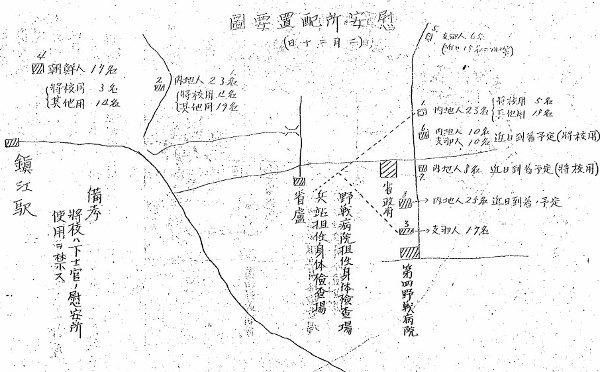 慰安所配置要圖
(二月二十日)
5
支那人6名
4
朝鮮人17名
将校用 3名
其他用 14名
2
内地人23名
将校用4名
其他用19名
1
内地人23名
将校用 5名
其他用 18名
6
内地人10名
支那人10名
近日到着予定(将校用)
7
内地人8名 近日到着予定(将校用)
内地人25名近日到着ノ予定
3
支那人17名
鎮江駅
省廬
省政府
第四野戦病院
野戦病院担任身体検査場
兵站担任身体検査場
備考
将校ハ下士官ノ慰安所
使用ヲ禁ス